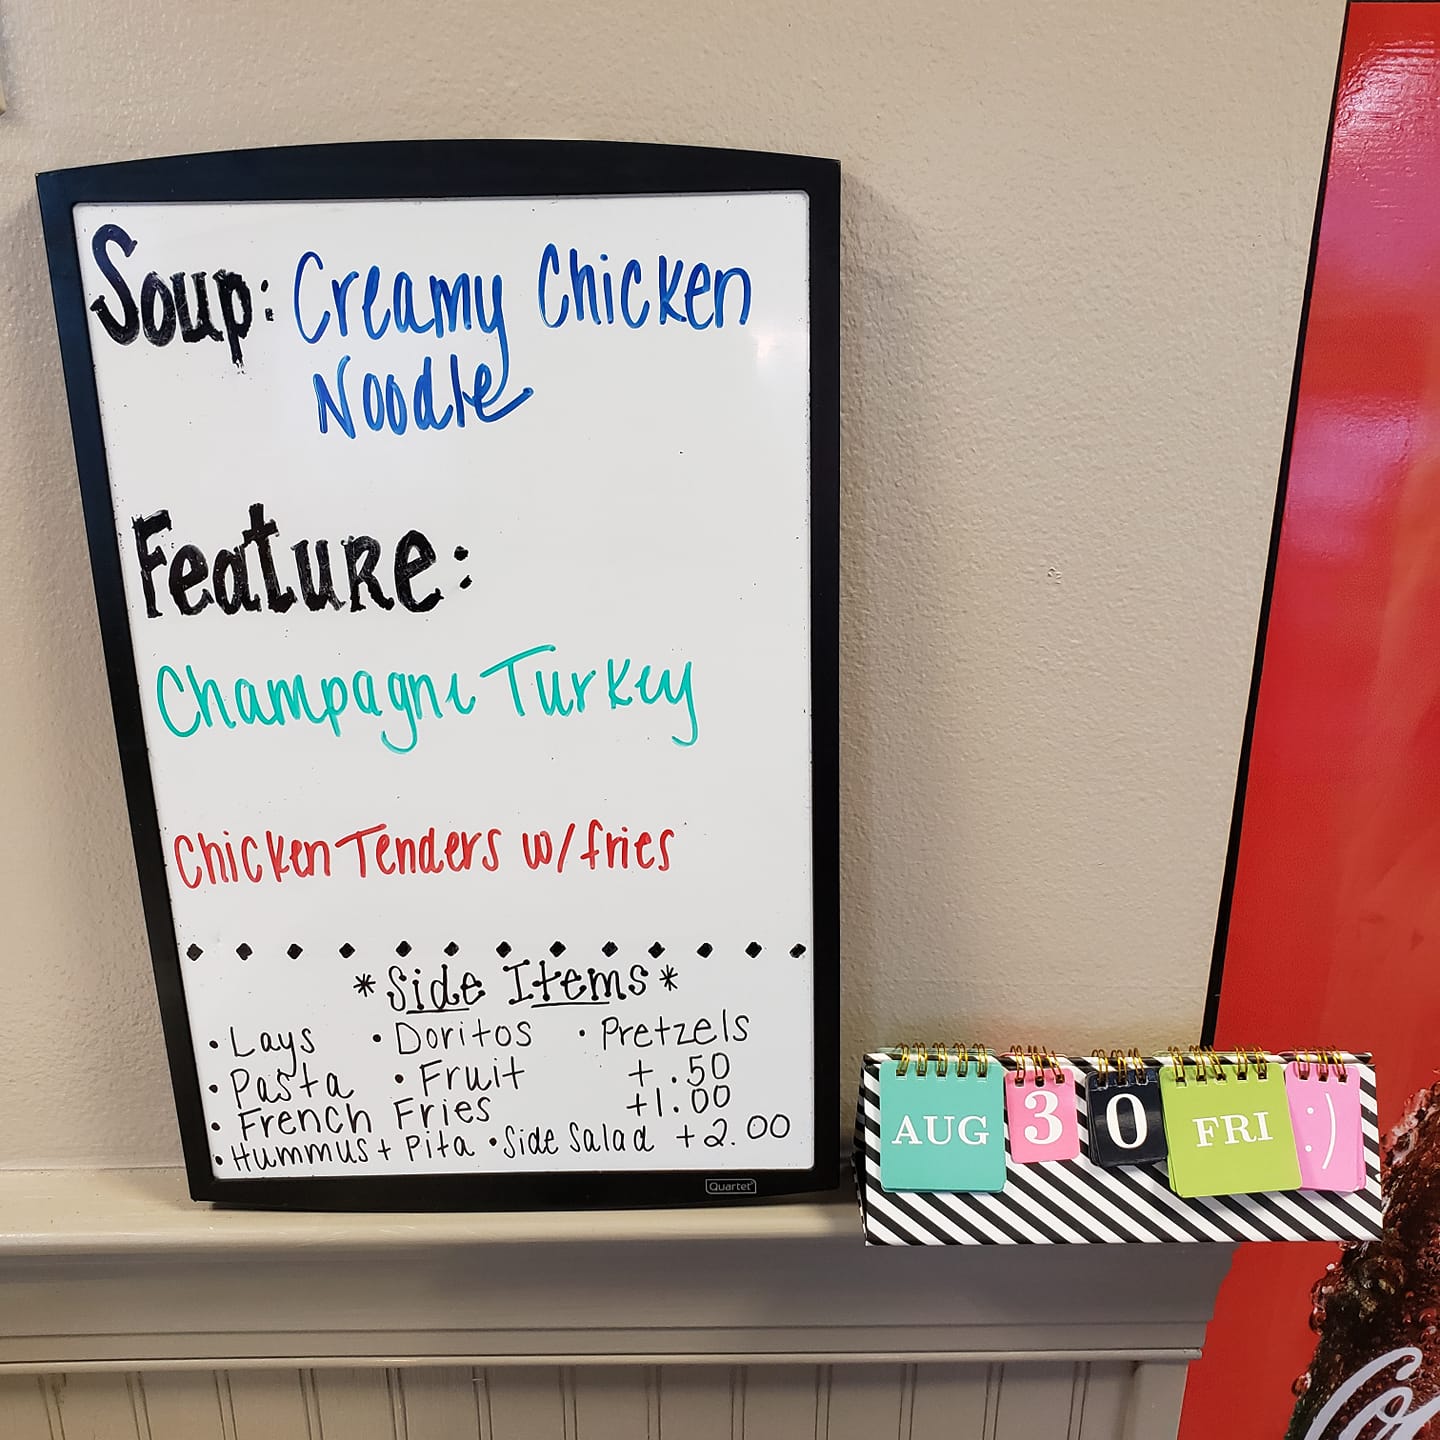 Soup: Creamy Chicken
Noodle
Feature:
Champagne Turkey
Chicken Tenders w/fries
*Side Items*
• Lays • Doritos • Pretzels
• Pasta • Fruit + .50
• French Fries +1.00
• Hummus + Pita • Side Salad +2.00
Quartet
AUG 3 0 FRI :)